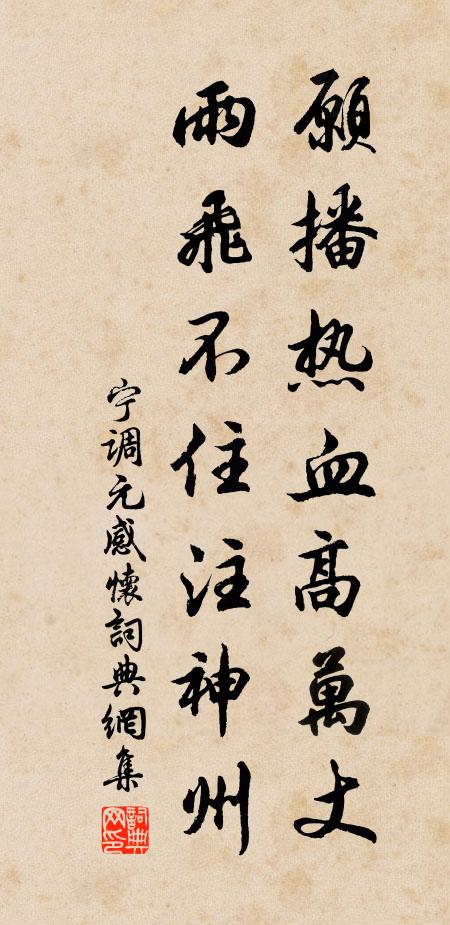 願播热血高萬丈
雨飛不住注神州
宁调元感懷詞典網集
詞典网印